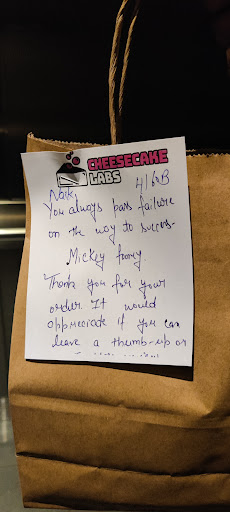 CHEESECAKE
LABS
Naik,
You always pass failure
on the way to success-
Mickey
Thank you for your
order. It would
appreciate if you can
leave a thumb-up or